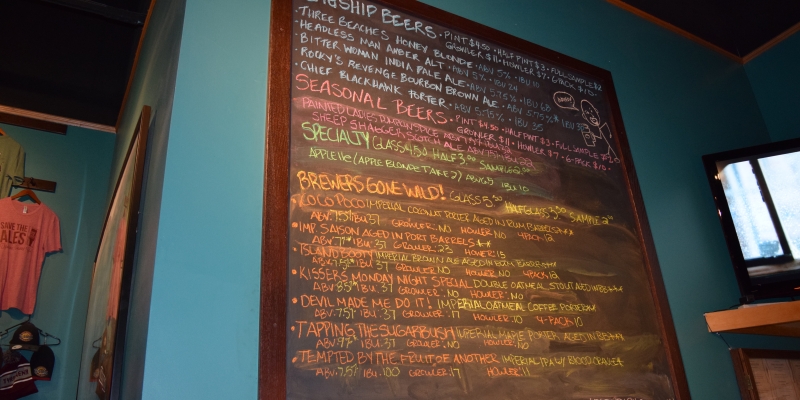 FLAGSHIP BEERS · PINT $4.50 · HALF PINT $3 · FULL SAMPLE $2
GROWLER $11 · HOWLER $7 · 6-PACK $10
· THREE BEACHES HONEY BLONDE · ABV 5% · IBU 10
· HEADLESS MAN AMBER ALT · ABV 5% · IBU 24
· BITTER WOMAN INDIA PALE ALE · ABV 5.75% · IBU
· ROCKY'S REVENGE BOURBON BROWN ALE · ABV 5.75%
· CHIEF BLACKHAWK PORTER · ABV 5.75% · IBU 35
SEASONAL BEERS · PINT $4.50 · HALF PINT $3 · FULL SAMPLE $2
GROWLER $11 · HOWLER $7 · 6-PACK $10
PAINTED LADIES PUMPKIN SPICE
SHEEP SHAGGER SCOTCH ALE
SPECIALTY GLASS 4.50 HALF 3.00 SAMPLE 2.00
APPLE (APPLE BLONDE TAKE 2) ABV 5 IBU 10
BREWERS GONE WILD! GLASS 5.00 HALF GLASS SAMPLE
· COCO POCO IMPERIAL COCONUT PORTER AGED IN RUM BARRELS
ABV: 7.5% IBU: 37 GROWLER: NO HOWLER: NO 4PACK: 12
· IMP. SAISON AGED IN PORT BARRELS
ABV: 7% IBU: 37 GROWLER: 23 HOWLER: 15
· ISLAND BOOTY IMPERIAL BROWN ALE AGED IN RUM BARRELS
IBU: 37 GROWLER: NO HOWLER: NO 4PACK: 12
· KISSER'S MONDAY NIGHT SPECIAL DOUBLE OATMEAL STOUT AGED
IBU: 37 GROWLER: NO HOWLER: NO
· DEVIL MADE ME DO IT! IMPERIAL OATMEAL COFFEE PORTER
ABV: 7.5% IBU: 37 GROWLER: 17 HOWLER: 10 4-PACK: 10
· TAPPING THE SUGARBUSH IMPERIAL MAPLE PORTER AGED IN
IBU: 37 GROWLER: NO HOWLER: NO
· TEMPTED BY THE FRUIT OF ANOTHER IMPERIAL IPA W/ BLOOD ORANGE
ABV: 7.5% IBU: 100 GROWLER: 17 HOWLER: 11
SAVE THE
ALES